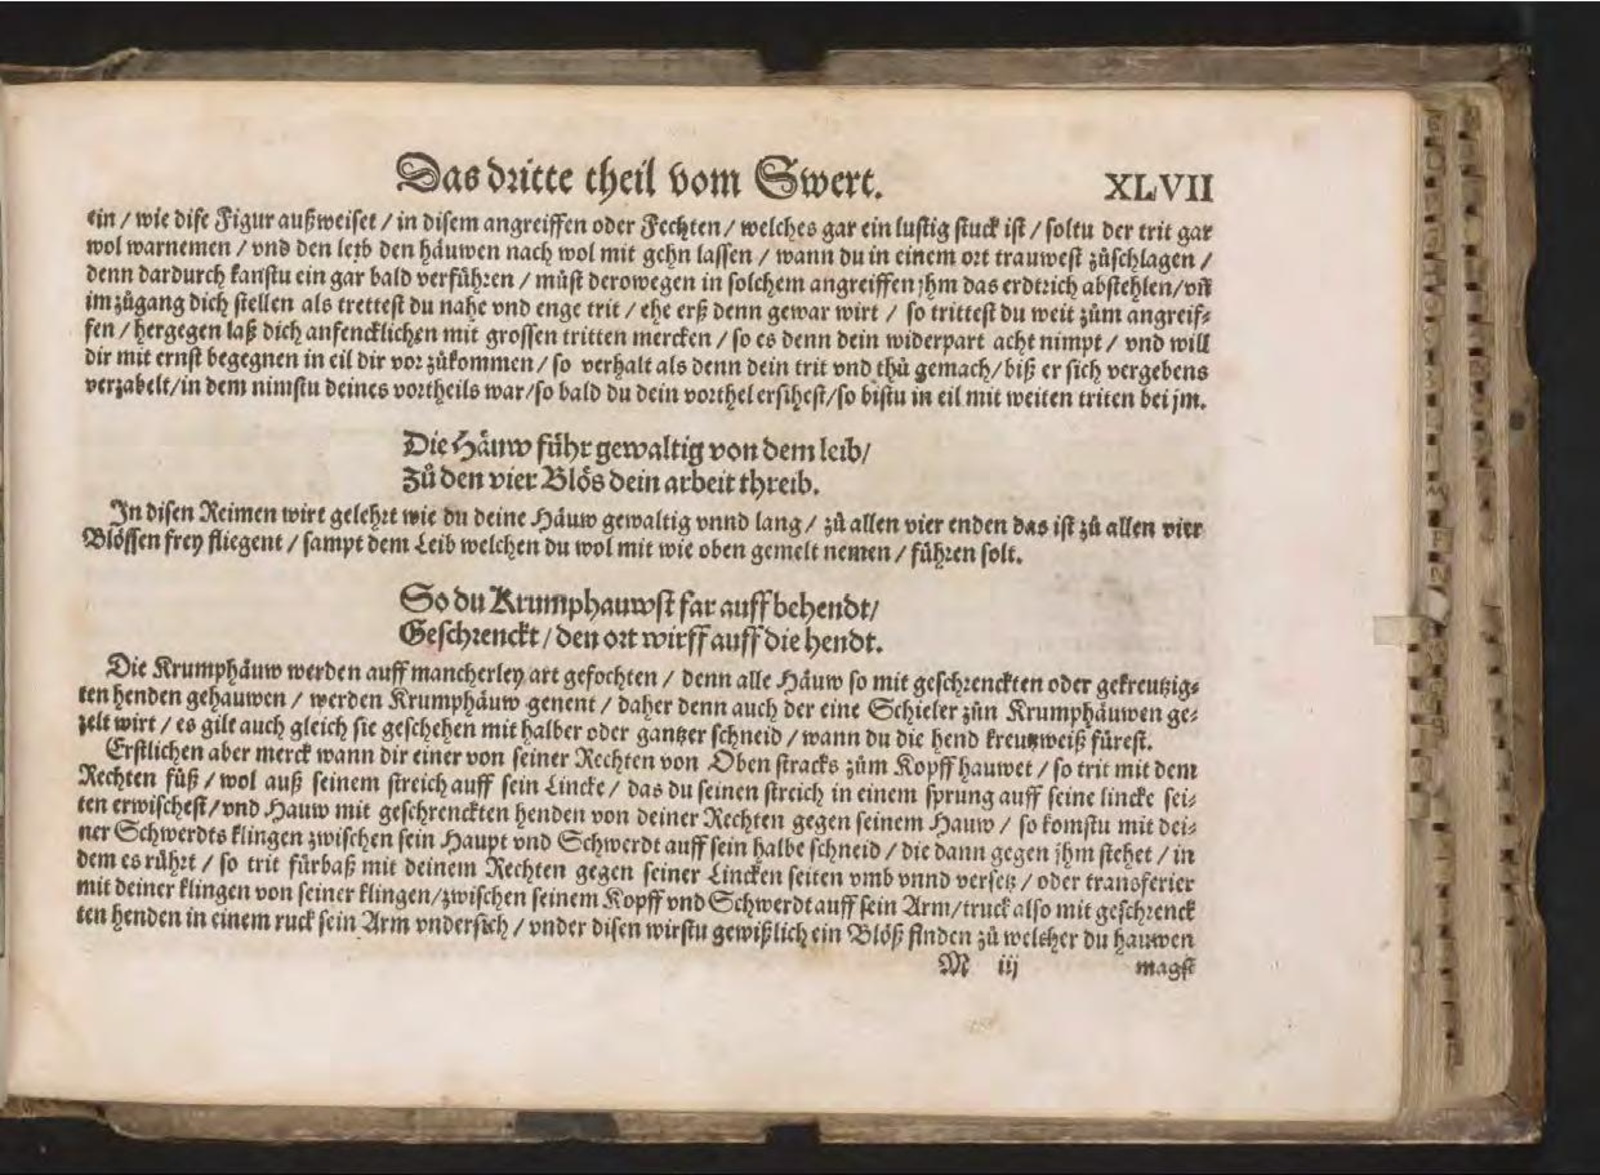 Das dritte theil vom Swert. XLVII
ein / wie dise Figur außweiset / in disem angreiffen oder Fechten / welches gar ein lustig stuck ist / soltu der trit gar
wol warnemen / vnd den leib den häuwen nach wol mit gehn lassen / wann du in einem ort trauwest zůschlagen /
denn dardurch kanstu ein gar bald verführen / můst derowegen in solchem angreiffen jhm das erdtrich abstehlen / vñ
im zůgang dich stellen als trettest du nahe vnd enge trit / ehe erß denn gewar wirt / so trittest du weit zům angreif⸗
fen / hergegen laß dich anfencklichen mit grossen tritten mercken / so es denn dein widerpart acht nimpt / vnd will
dir mit ernst begegnen in eil dir vor zůkommen / so verhalt als denn dein trit vnd thů gemach / biß er sich vergebens
verzabelt / in dem nimstu deines vortheils war / so bald du dein vorthel ersihest / so bistu in eil mit weiten triten bei jm.
Die Häuw führ gewaltig von dem leib /
Zů den vier Blös dein arbeit threib.
In disen Reimen wirt gelehrt wie du deine Häuw gewaltig vnnd lang / zů allen vier enden das ist zů allen vier
Blössen frey fliegent / sampt dem Leib welchen du wol mit wie oben gemelt nemen / führen solt.
So du Krumphauwst far auff behendt /
Geschrenckt / den ort wirff auff die hendt.
Die Krumphäuw werden auff mancherley art gefochten / denn alle Häuw so mit geschrenckten oder gekreutzig⸗
ten henden gehauwen / werden Krumphäuw genent / daher denn auch der eine Schieler zůn Krumphäuwen ge⸗
zelt wirt / es gilt auch gleich sie geschehen mit halber oder gantzer schneid / wann du die hend kreutzweiß fürest.
Erstlichen aber merck wann dir einer von seiner Rechten von Oben stracks zům Kopff hauwet / so trit mit dem
Rechten fůß / wol auß seinem streich auff sein Lincke / das du seinen streich in einem sprung auff seine lincke sei⸗
ten erwischest / vnd Hauw mit geschrenckten henden von deiner Rechten gegen seinem Hauw / so komstu mit dei⸗
ner Schwerdts klingen zwischen sein Haupt vnd Schwerdt auff sein halbe schneid / die dann gegen jhm stehet / in
dem es rührt / so trit fürbaß mit deinem Rechten gegen seiner Lincken seiten vmb vnnd versetz / oder transferier
mit deiner klingen von seiner klingen / zwischen seinem Kopff vnd Schwerdt auff sein Arm / truck also mit geschrenck
ten henden in einem ruck sein Arm vndersich / vnder disen wirstu gewißlich ein Blöß finden zů welcher du hauwen
M iij magst